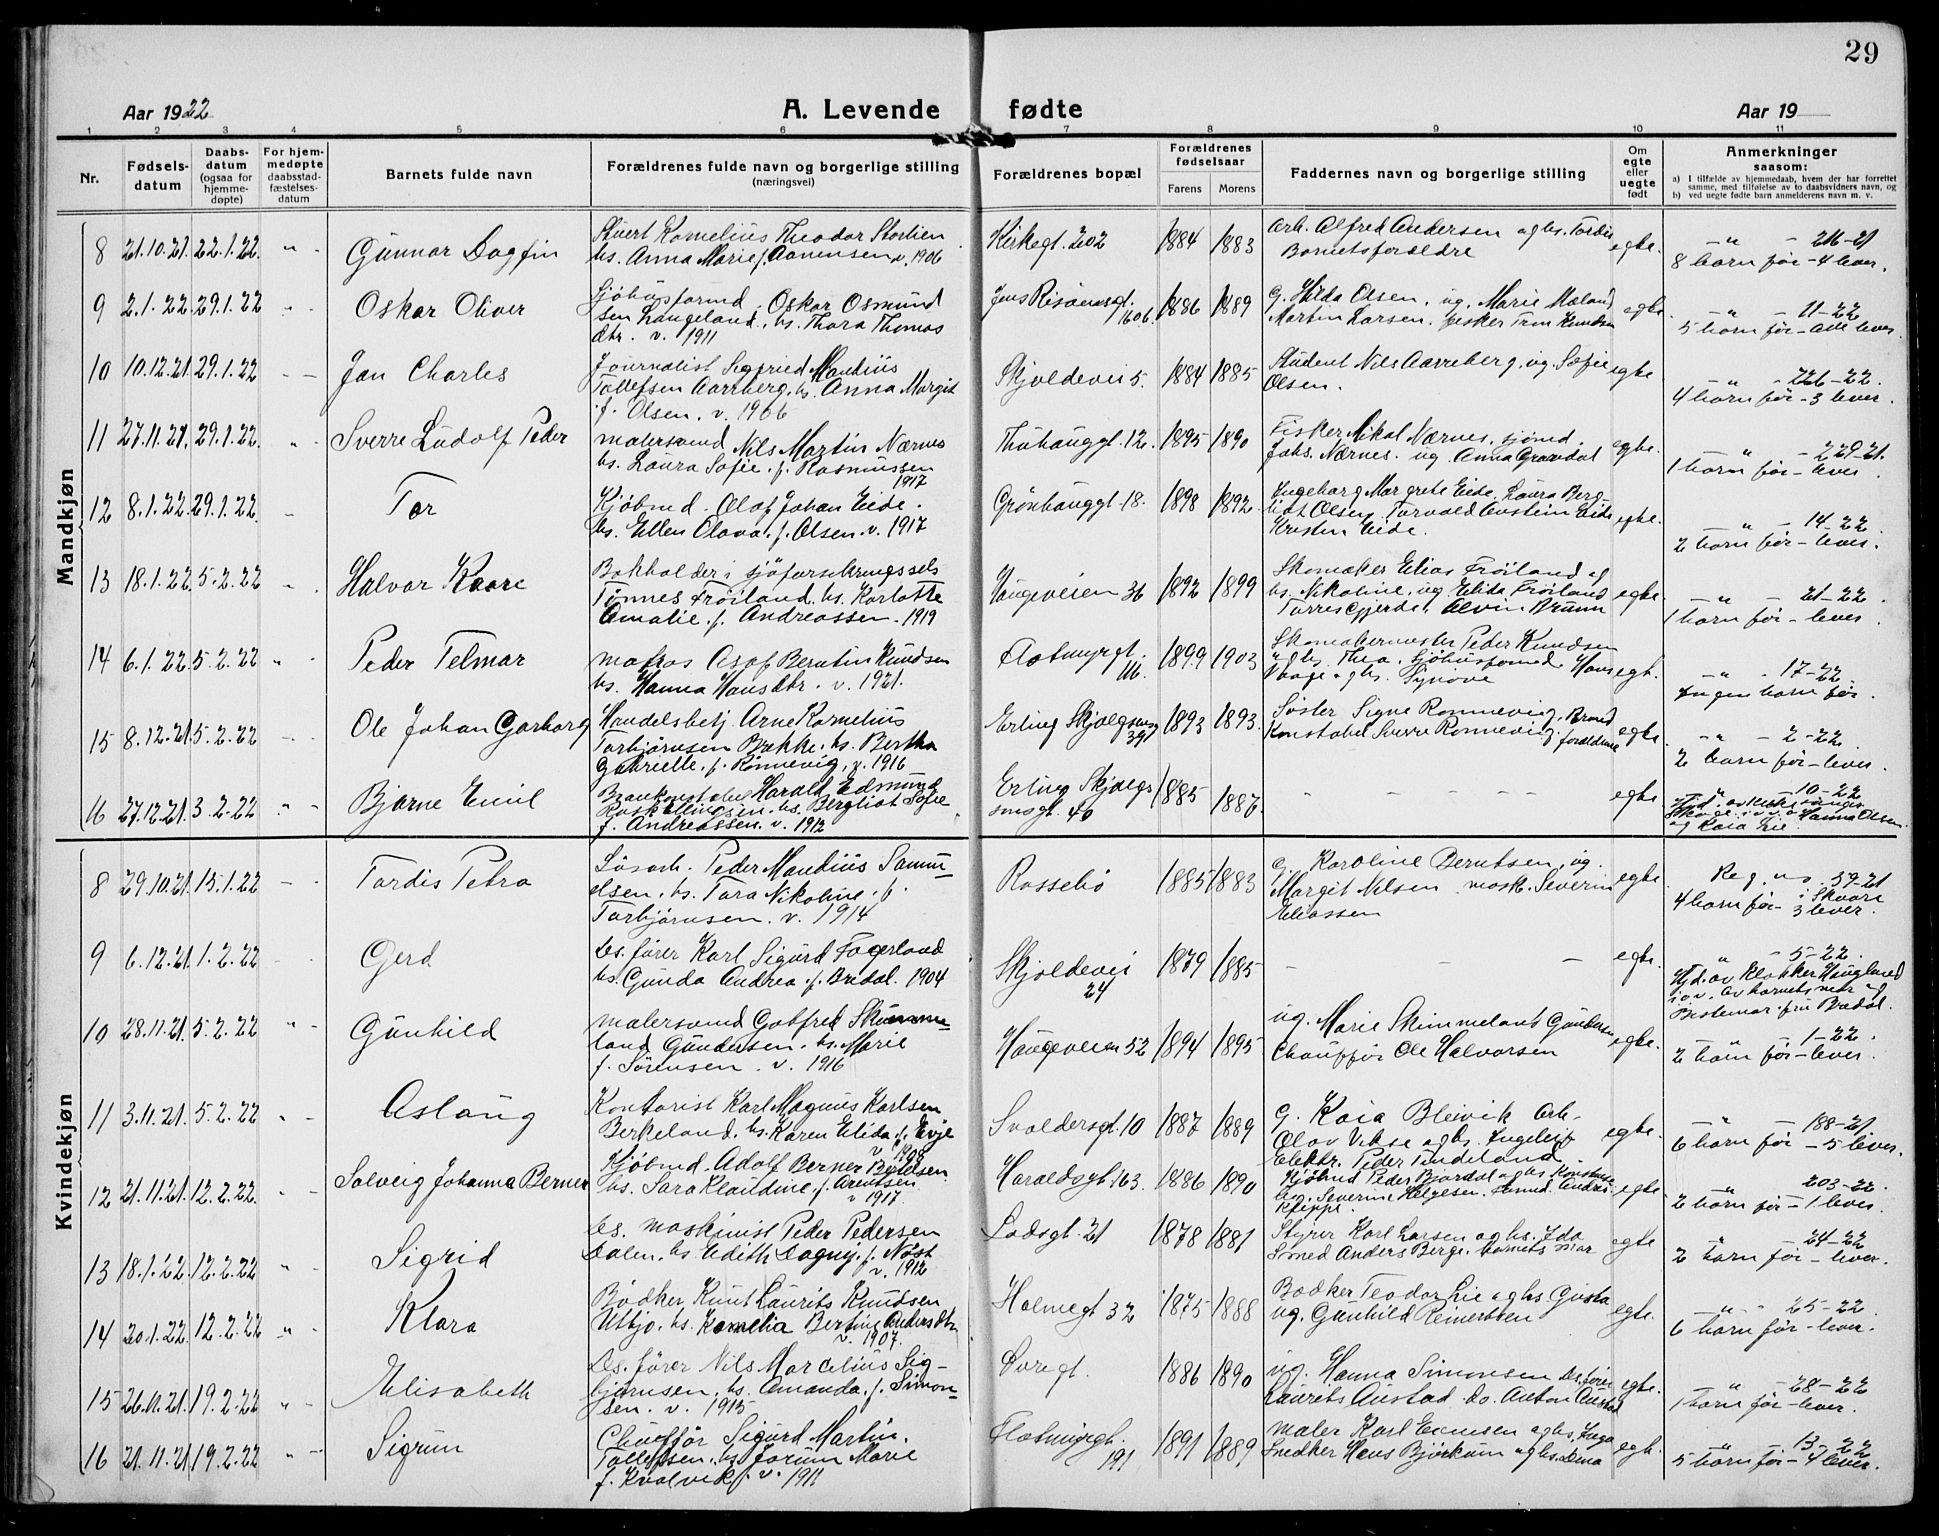 29
Aar 1922
A. Levende fødte
Aar 19
1 2 3 4 5 6 7 8 9 10 11
Nr.
Fødsels-
datum
Daabs-
datum
(ogsaa for
hjemme-
døpte)
For hjem-
medøpte
daabsstad-
fæstelses-
datum
Barnets fulde navn
Forældrenes fulde navn og borgerlige stilling
(næringsvei)
Forældrenes bopæl
Forældrenes
fødselsaar
Farens Morens
Faddernes navn og borgerlige stilling
Om
egte
eller
uegte
født
Anmerkninger
saasom:
a) I tilfælde av hjemmedaab, hvem der har forrettet
samme, med tilføielse av to daabsvidners navn, og
b) ved uegte fødte barn anmelderens navn m. v.
Mandkjøn
8 21.10.21. 22.1.22. Gunnar Dagfin
Stuert Kornelius Theodor Stortien
hs. Anna Marie f. Aanensen v. 1906
Kirkegt. 202 1884 1883
Arb. Alfred Andersen og hs. Tordis
Barnets forældre
egte.
8 barn før - 4 lever.
9 2.1.22. 29.1.22 Oskar Oliver
Sjøhusformd. Oskar Osmund
sen Langeland. hs. Thora Thomas
dtr. v. 1911
Jens Risøensgt.
160b. 1886 1889
G. Hilda Olsen, ug. Marie Mæland
Martin Larsen, fisker Trin Knudsen
egte.
11-22
5 barn før - alle lever
10 10.12.21. 29.1.22 Jan Charles
Journalist Sigfried Mandius
Tollefsen Aarreberg. hs. Anna Margit
f. Olsen. v. 1906
Skjoldevei 5. 1884 1885
Student Nils Aarreberg, ug. Sofie
Olsen.
egte
226-22.
4 barn før - 3 lever.
11 27.11.21. 29.1.22. Sverre Ludolf Peder
malersvend Nils Martin Nærnes
hs. Laura Sofie. f. Rasmussen
1917
Thuhauggt. 12. 1895 1890
Fisker Nikal Nærnes. sjømd.
Johs. Nærnes. ug. Anna Gravdal
egte.
229-21.
1 barn før - lever
12 8.1.22. 29.1.22. Tor
Kjøbmd. Olaf Johan Eide.
hs. Ellen Olava. f. Olsen. v. 1917
Grønhauggt. 18. 1898 1892.
Ingeborg Margrete Eide, Laura Berg-
liot Olsen. Torvald Anstein Eide
Kristen Eide.
egte.
14-22
2 barn før - lever.
13 18.1.22. 5.2.22 Halvor Kaare
Bokholder i sjøforsikringssels
Tønnes Frøiland. hs. Karlotte
Amalie. f. Andreassen. 1919
Haugeveien 36 1892 1899
Skomaker Elias Frøiland og
hs. Nikoline, ug Elida Frøiland
Torres Gjerde. Alvin Bruun
egte.
21-22
1 barn før - lever
14 6.1.22. 5.2.22 Peder Telmar
matros Osof Berntin Knudsen
hs. Hanna Hansdtr. v. 1921.
Flotmyrgt. 1899 1903
Skomakermester Peder Knudsen
og hs. Thea. Sjøhusformd. Hans
Vaage og hs. Synøve
egt.
17-22
Ingen barn før.
15 8.12.21. 5.2.22 Ole Johan Garborg
Handelsbetj. Arne Kornelius
Torbjørnsen Bakke. hs. Bertha
Gabrielle. f. Rønnevig, v. 1916
Erling Skjalgsonsg
39 1893 1893.
Søster Signe Rønnevig, Brand
konstabel Sverre Rønnevig. forældrene
egte.
2-22.
2 barn før - lever.
16 27.12.21. 3.2.22 Bjarne Emil
Brankonstabel Harald Edmund
hs. Bergliot Sofie
f. Andreassen. v. 1912
Erling Skjalgs
sonsgt. 40 1885 1887.
egte
10-22
Hanna Olsen
og Kaia Lie.
Kvindekjøn
8 29.10.21. 15.1.22 Tordis Petra
Løsarb. Peder Mandius Samu-
elsen. hs. Tora Nikoline. f.
Torbjørnsen. v. 1914
Rossebø 1885 1883
G. Karoline Berntsen, ug.
Margit Nilsen mask. Severin
Eliassen
egte
Reg. no. 39-21
i Skaare
4 barn før - 3 lever.
9 6.12.21. 1.2.22 Gerd
Ds. fører Karl Sigurd Fagerland
hs. Gunda Andrea. f. Bredal. 1904
Skjoldevei
24 1879 1885
egte.
5-22.
Hjd. av klokker Haugland
i o. v. av barnets mor og
Bestemor fru Bredal.
10 28.11.21. 5.2.22 Gunhild
malersvend Gotfred Skimme-
land Gundersen. hs. Marie
f. Sørensen. v. 1916
Haugeveien 52 1894 1895
ug. Marie Skimmeland Gundersen
Chauffør Ole Halvorsen
egte.
1-22.
2 barn før - lever.
11 3.11.21. 5.2.22 Aslaug
Kontorist Karl Magnus Karlsen
Berkeland. hs. Karen Elida. f. Evje
v. 1908
Svoldersgt. 10 1887 1889
G. Kaia Bleivik Arb.
Olav Vikse og hs. Ingeleif
Elektr. Peder Tindeland.
egte.
188-21
6 barn før - 5 lever.
12 21.11.21. 12.2.22. Solveig Johanna Berner
Kjøbmd. Adolf Berner Bertelsen
hs. Sara Klaudine. f. Arentsen
v 1917
Haraldsgt. 163. 1886 1890
Kjøbmd Peder Bjordal og hs Konstanse
Severine Helgesen. Andr.
Klippe.
egte.
203-22
2 barn før - 1 lever.
13 18.1.22. 12.2.22 Sigrid
Ds. maskinist Peder Pedersen
Dalen. hs. Edith Dagny. f. Nøst
v. 1912
Lodsgt. 21 1878 1881
Styrer Karl Larsen og hs. Ida
Smed Anders Berge. barnets mor
egte
24-22
2 barn før - lever.
14 20.1.22. 12.2.22 Klara
Bødker Knut Laurits Knudsen
Utbjo. hs. Kornelia Bertine Andersdtr.
v. 1907.
Holmegt 32 1875 1888
Bødker Teodor Lie og hs. Gusta
ug. Gunhild Reinertsen
egte.
25-22
6 barn før - lever.
15 26.11.21. 19.2.22 Elisabeth
Ds. fører Nils Marcelius Sig-
bjørnsen. hs. Amanda. f. Simon-
sen. v. 1915
Suregt. 1886 1890
ug. Hanna Simonsen Ds. fører
Laurits Austad do. Anton Austad
egte.
28-22
1 barn før - lever.
16 21.11.21. 19.2.22 Sigrun
Chauffør Sigurd Martin.
Tollefsen. hs. Jorunn Marie
f. Kvalvik. v. 1911
Flotmyrgt.
191 1891 1889
maler Karl Evensen og hs. Inga
Snedker Hans Bjørkum og hs. Dina
egt.
13-22
5 barn før - 4 lever.